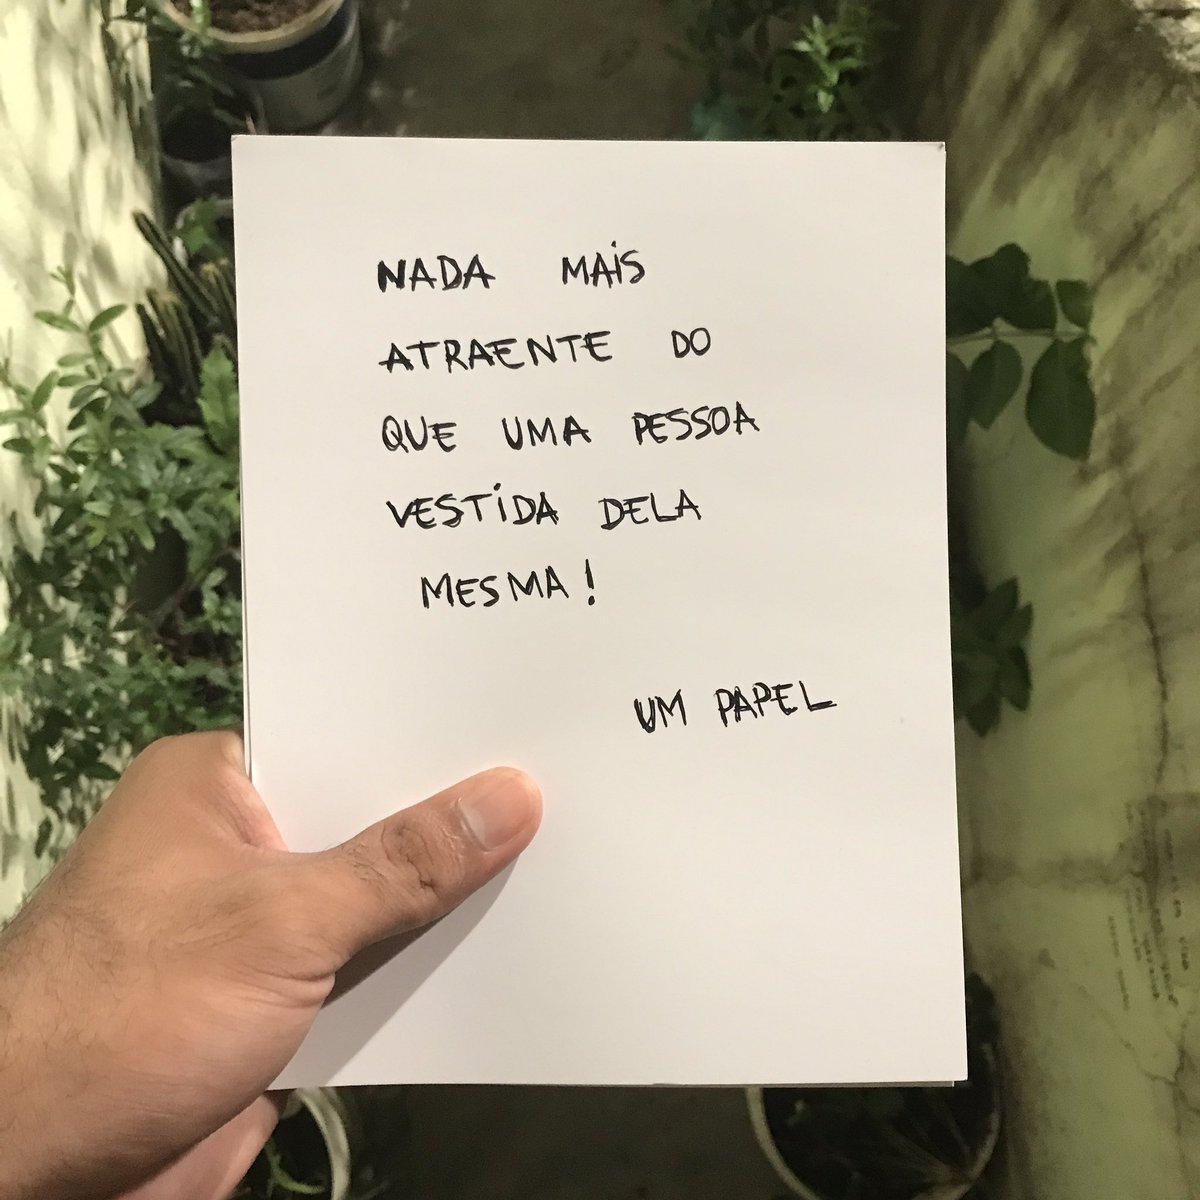 NADA MAIS
ATRAENTE DO
QUE UMA PESSOA
VESTIDA DELA
MESMA!
UM PAPEL